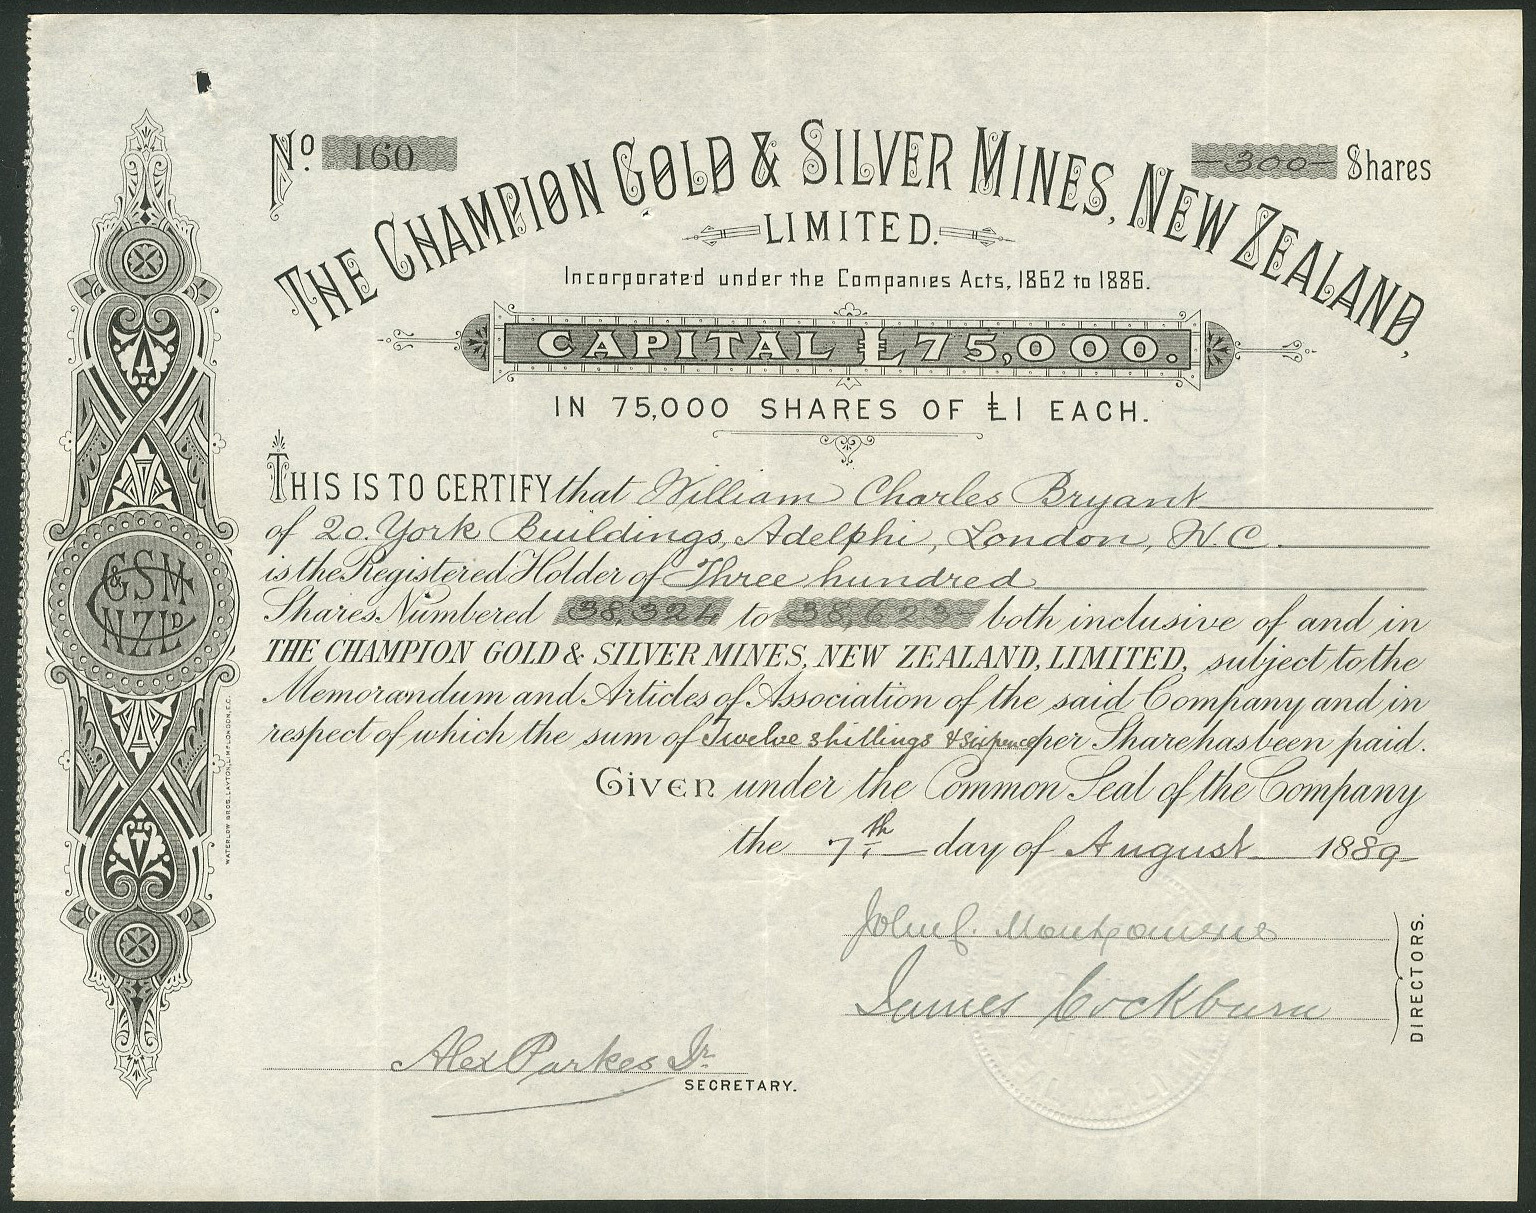 No 160
300 Shares
THE CHAMPION GOLD & SILVER MINES, NEW ZEALAND,
LIMITED.
Incorporated under the Companies Acts, 1862 to 1886.
CAPITAL £75,000.
IN 75,000 SHARES OF £1 EACH.
THIS IS TO CERTIFY that William Charles Bryant
of 20. York Buildings, Adelphi, London, W.C.
is the Registered Holder of Three hundred
Shares Numbered 38,324 to 38,623 both inclusive of and in
THE CHAMPION GOLD & SILVER MINES, NEW ZEALAND, LIMITED, subject to the
Memorandum and Articles of Association of the said Company and in
respect of which the sum of Twelve shillings & Sixpence per Share has been paid.
GIVEN under the Common Seal of the Company
the 7th day of August 1889
John
James Cockburn
DIRECTORS.
Alex Parkes Jr.
SECRETARY.
C G & S M
N Z LD
WATERLOW BROS. & LAYTON, LIMD. LONDON, E.C.